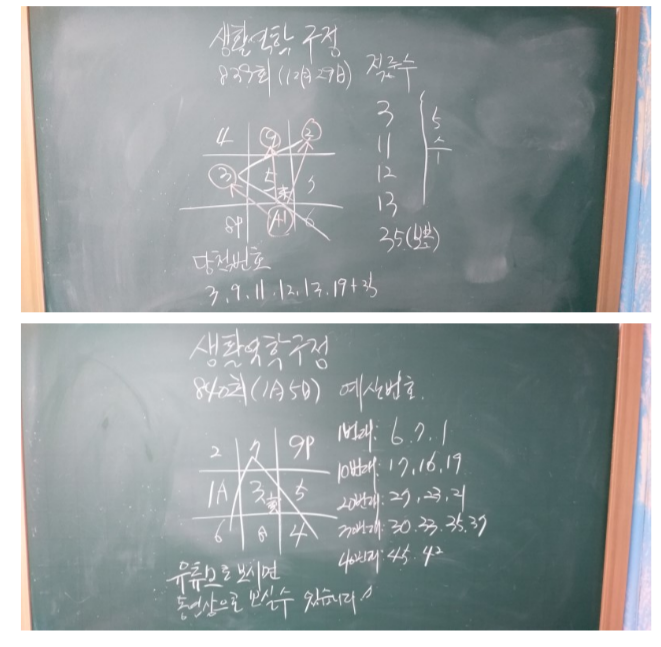 생활역학 구정
839회 (12月29日) 적중수
3
11
12
13
35(보볼)
5
4 9 2
3 5 7
8P A1 6
당첨번호
3.9.11.12.13.19+35
생활역학구정
840회 (1月5日) 예상번호.
1번대: 6.7.1
2 7 9P
10번대: 17,16,19
1A 3 5
20번대: 27,23,21
6 8 4
30번대: 30.33.35.37
40번대: 45.42
유튜브로 보시면
동영상으로 보실수 있습니다